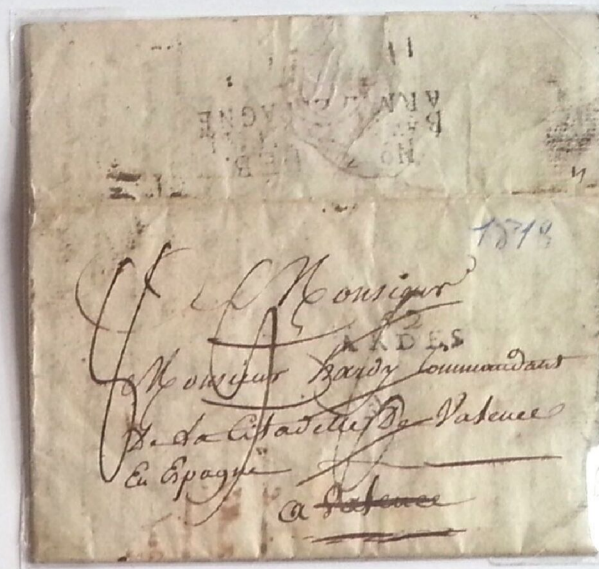 ARM D'ESPAGNE
1813
Monsieur
ARDES
Monsieur hardy Commandant
De la Citadelle De Valence
En Espagne
a Valence